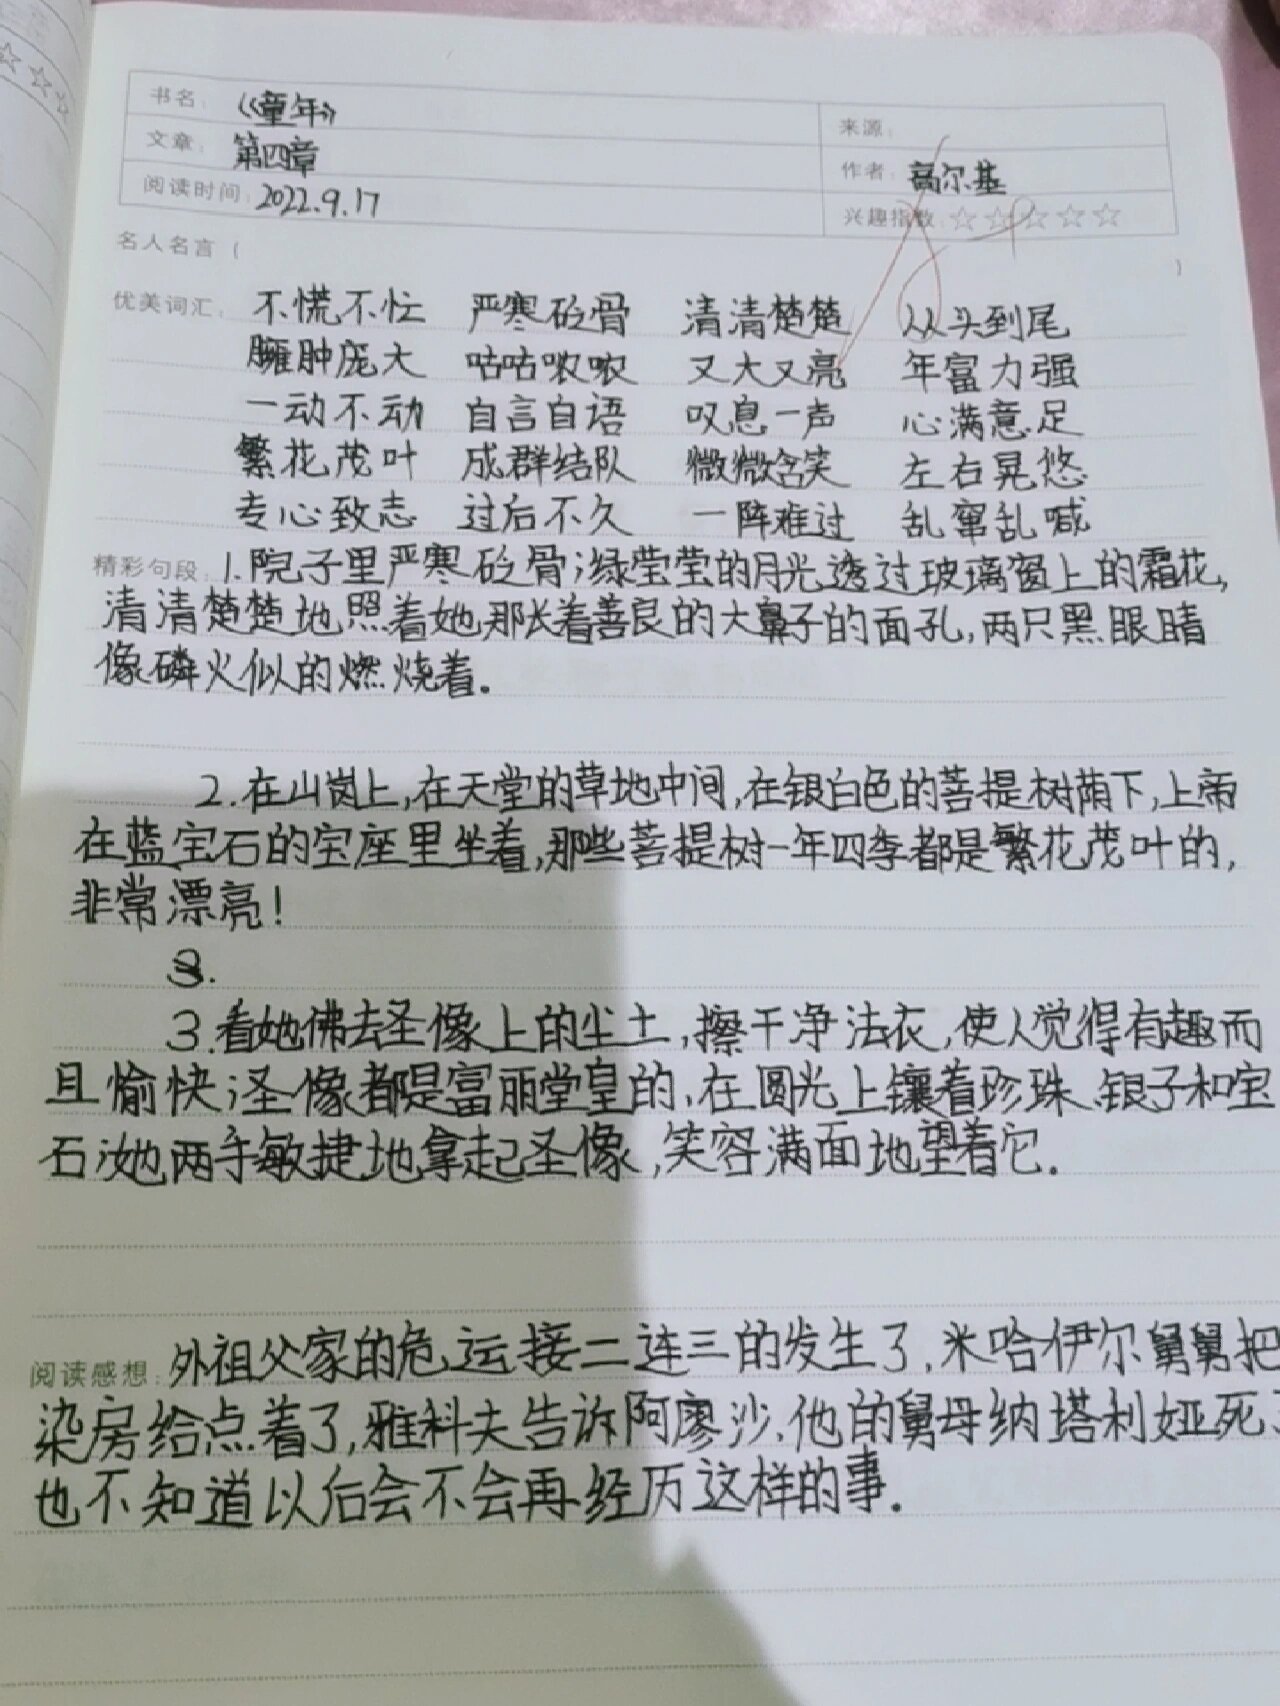 书名：《童年》
来源：
文章：第四章
作者：高尔基
阅读时间：2022.9.17
兴趣指数：☆☆☆☆☆
名人名言（ ）
优美词汇：不慌不忙 严寒砭骨 清清楚楚 从头到尾
臃肿庞大 咕咕哝哝 又大又亮 年富力强
一动不动 自言自语 叹息一声 心满意足
繁花茂叶 成群结队 微微含笑 左右晃悠
专心致志 过后不久 一阵难过 乱窜乱喊
精彩句段：1.院子里严寒砭骨；绿莹莹的月光透过玻璃窗上的霜花，
清清楚楚地照着她那长着善良的大鼻子的面孔，两只黑眼睛
像磷火似的燃烧着。
2.在山岗上，在天堂的草地中间，在银白色的菩提树荫下，上帝
在蓝宝石的宝座里坐着，那些菩提树一年四季都是繁花茂叶的，
非常漂亮！
3.
3.看她佛去圣像上的尘土，擦干净法衣，使人觉得有趣而
且愉快；圣像都是富丽堂皇的，在圆光上镶着珍珠、银子和宝
石；她两手敏捷地拿起圣像，笑容满面地望着它。
阅读感想：外祖父家的危运接二连三的发生了，米哈伊尔舅舅把
染房给点着了，雅科夫告诉阿廖沙，他的舅母纳塔利娅死了
也不知道以后会不会再经历这样的事。